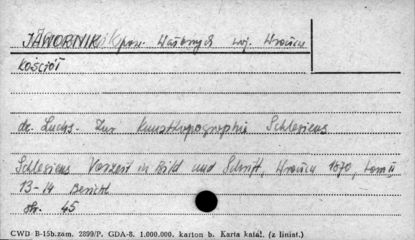 JAWORNIK pow. woj. Wrocław
Kościół
dr. Luchs. Zur Kunsttopographie Schlesiens
Schlesiens Vorzeit in Bild und Schrift, Wrocław 1870, tom II
13-14 Bericht
str. 45
CWD B-15b.zam. 2899/P. GDA-8. 1.000.000. karton b. Karta katal. (z liniat.)